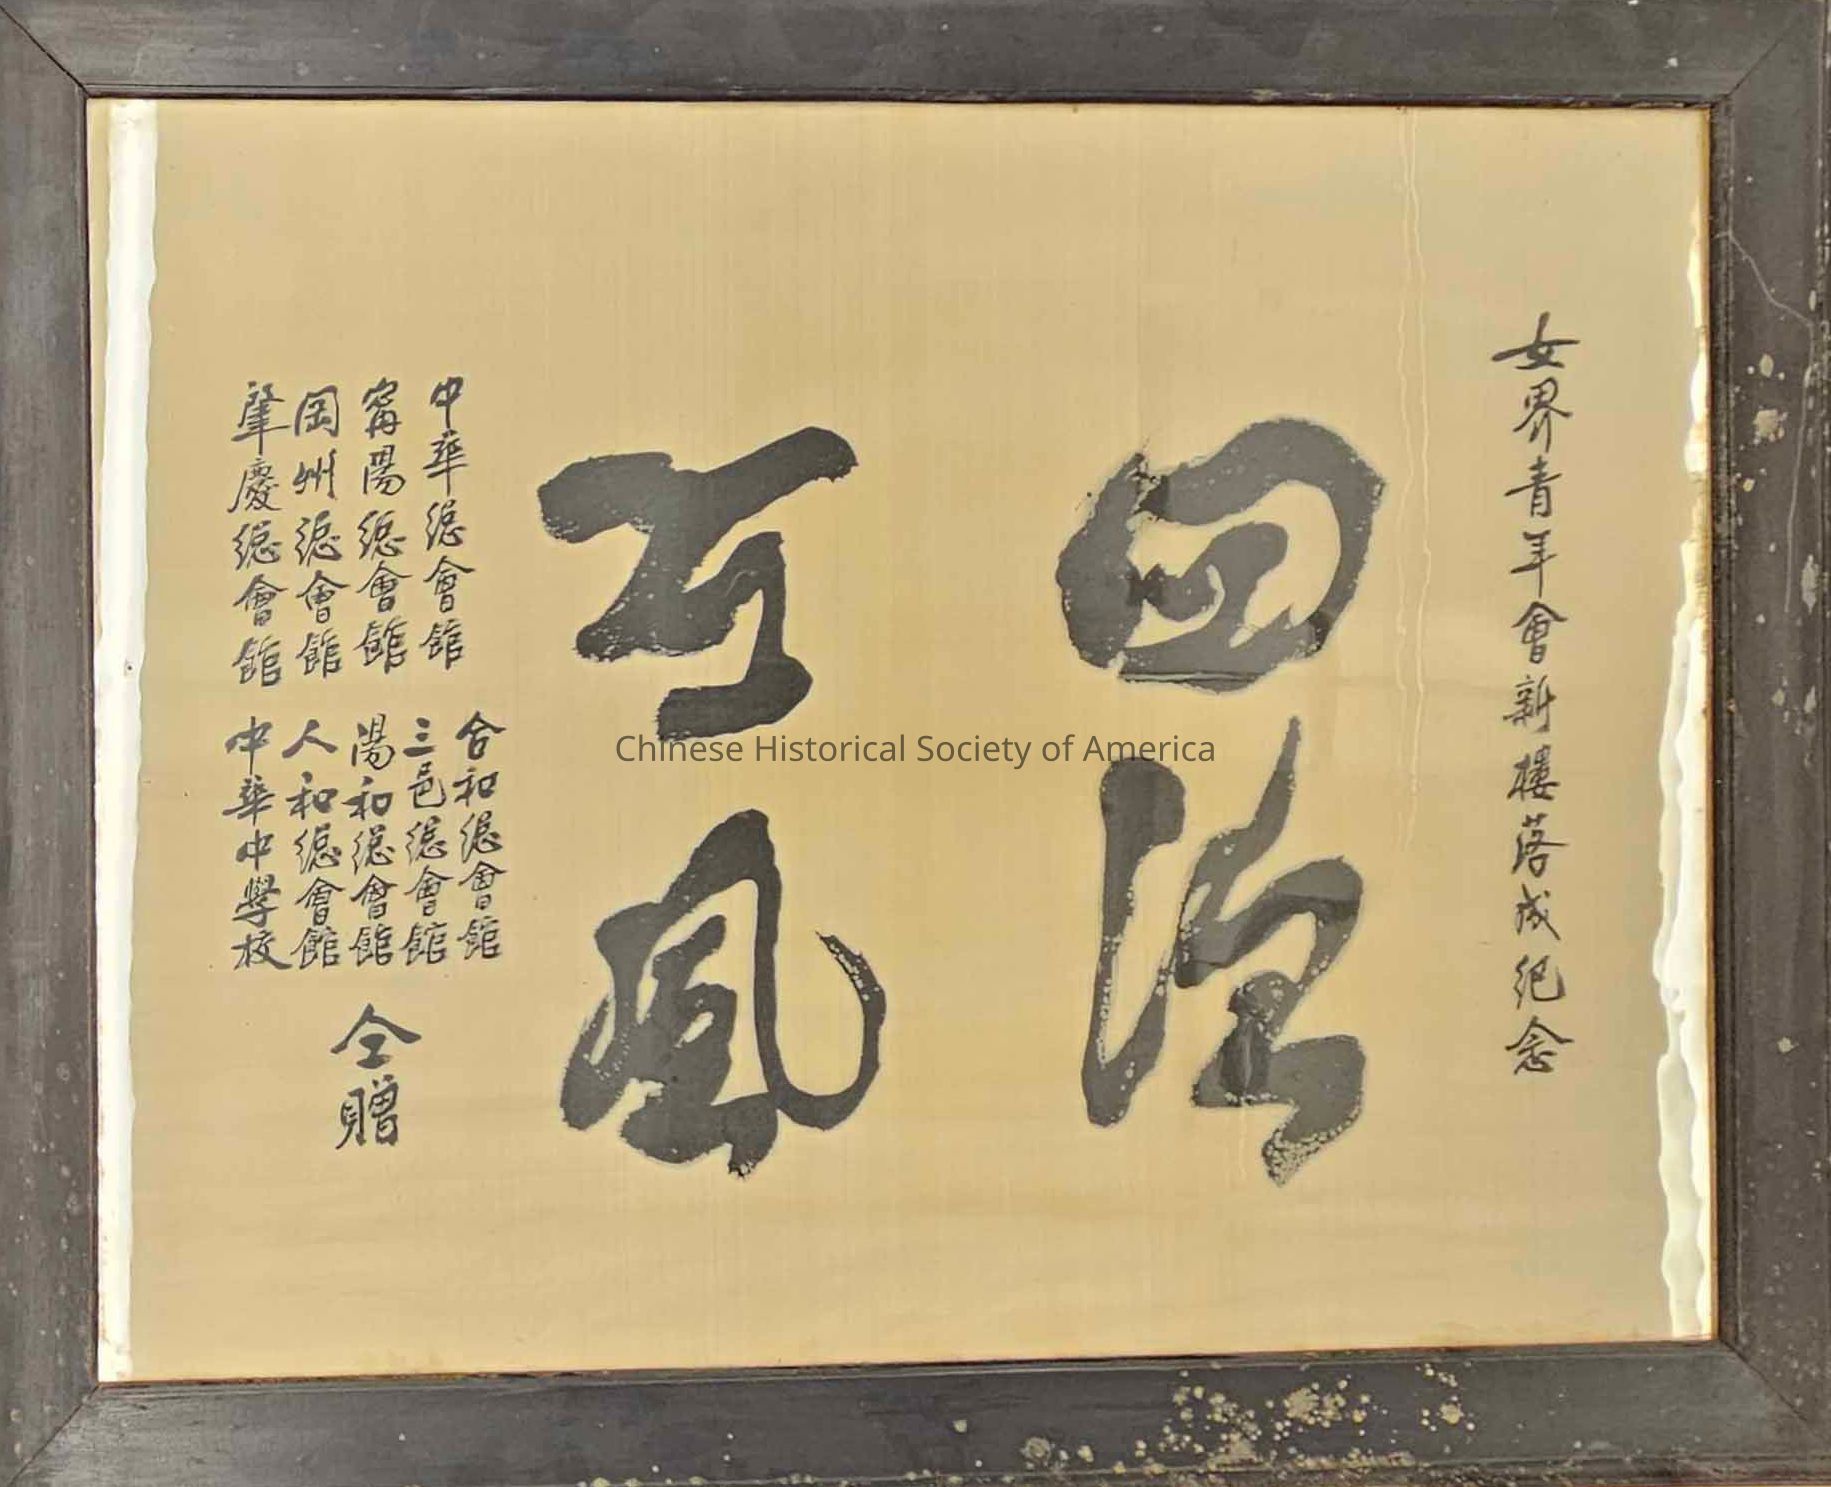 女界青年會新樓落成紀念
四德
可風
中華總會館
甯陽總會館
岡州總會館
肇慶總會館
合和總會館
三邑總會館
陽和總會館
人和總會館
中華中學校
仝贈
Chinese Historical Society of America